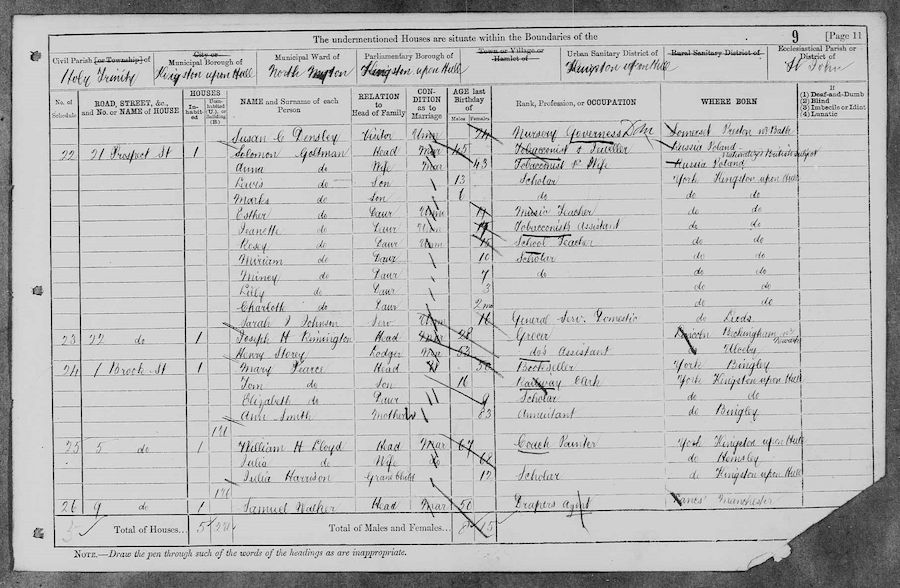 The undermentioned Houses are situate within the Boundaries of the 9 [Page 11
Civil Parish [or Township] of Holy Trinity
City or Municipal Borough of Kingston upon Hull
Municipal Ward of North Myton
Parliamentary Borough of Kingston upon Hull
Town or Village or Hamlet of
Urban Sanitary District of Kingston upon Hull
Rural Sanitary District of
Ecclesiastical Parish or District of St John
No. of Schedule
ROAD, STREET, &c., and No. or NAME of HOUSE
HOUSES Inhabited Uninhabited (U.), or Building (B)
NAME and Surname of each Person
RELATION to Head of Family
CONDITION as to Marriage
AGE last Birthday of Males Females
Rank, Profession, or OCCUPATION
WHERE BORN
If (1) Deaf-and-Dumb (2) Blind (3) Imbecile or Idiot (4) Lunatic
Susan C Densley Visitor Unm 24 Nursery Governess Somerset Preston nr Bath
22 21 Prospect St 1 Solomon Goltman Head Mar 45 Tobacconist & Jeweller Russia Poland
Anna do Wife Mar 43 Tobacconist Wife Russia Poland Naturalized British subject
Lewis do Son 13 Scholar York Kingston upon Hull
Marks do Son 6 do do do
Esther do Daur Unm Music Teacher do do
Jeanette do Daur Unm Tobacconists Assistant do do
Rosey do Daur Unm 15 School Teacher do do
Miriam do Daur 10 Scholar do do
Miney do Daur 7 do do do
Lilly do Daur 3 do do
Charlotte do Daur 2 mo do do
Sarah J Johnson Serv Unm 16 General Serv. Domestic do Leeds
23 22 do 1 Joseph H Rimington Head Mar 28 Grocer Lincoln Beckingham nr Newark
Henry Storey Lodger Mar 53 dos Assistant do Ulceby
24 1 Brook St 1 Mary Pearce Head W 50 Bookseller York Bingley
Tom do Son 16 Railway Clerk York Kingston upon Hull
Elizabeth do Daur 9 Scholar do do
Ann Smith Mother W 83 Annuitant do Bingley
25 5 do 1 William H Lloyd Head Mar 67 Coach Painter York Kingston upon Hull
Julia do Wife do 68 do Hemsley
Julia Harrison Grandchild 12 Scholar do Kingston upon Hull
26 9 do 1 Samuel Walker Head Mar 50 Drapers Agent Lancs Manchester
Total of Houses... 5 Total of Males and Females... 8 15
NOTE.—Draw the pen through such of the words of the headings as are inappropriate.